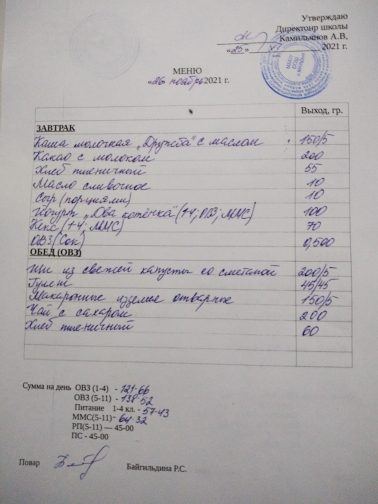 Утверждаю
Директоир школы
Камильянов А.В,
«25» 2021 г.
МЕНЮ
«26 ноября 2021 г.
Выход, гр.
ЗАВТРАК
Каша молочная „Дружба" с маслом 150/5
Какао с молоком 200
Хлеб пшеничный 55
Масло сливочное 10
Сыр (порциями) 10
Йогурт „Два котёнка" (1-4, ОВЗ; ММС) 100
Кекс (1-4; ММС) 70
ОВЗ (Сок) 0,500
ОБЕД (ОВЗ)
Щи из свежей капусты со сметаной 200/5
Гуляш 45/45
Макаронные изделие отварные 150/5
Чай с сахаром 200
Хлеб пшеничный 60
Сумма на день ОВЗ (1-4) - 121-66
ОВЗ (5-11) - 138-52
Питание 1-4 кл. - 57-43
ММС(5-11) - 64-32
РП(5-11) — 45-00
ПС - 45-00
Повар Байгильдина Р.С.